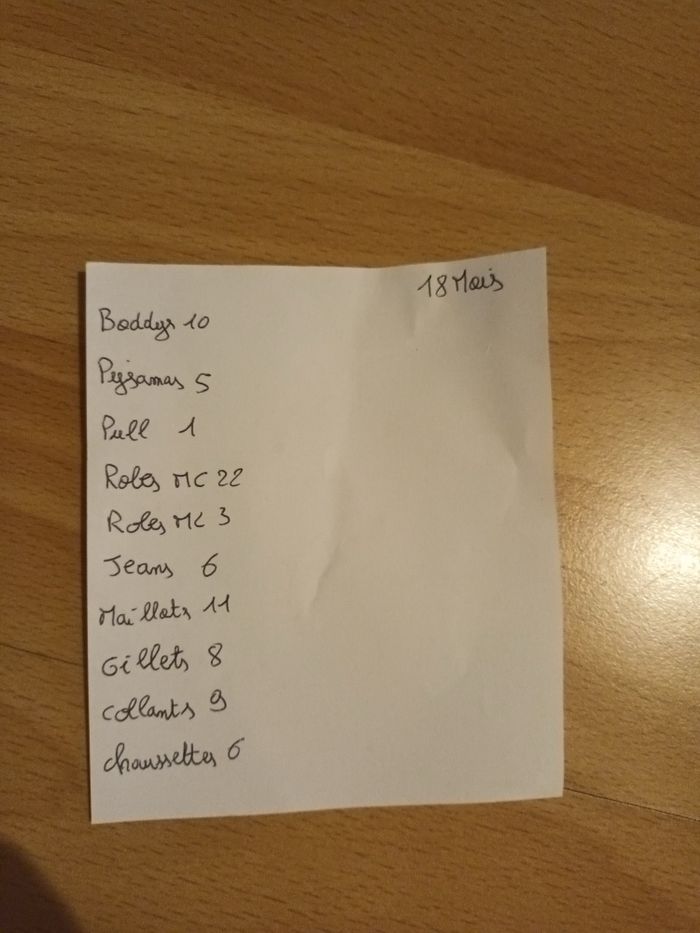 18 Mois
Boddys 10
Pyjamas 5
Pull 1
Robes MC 22
Robes ML 3
Jeans 6
Maillots 11
Gillets 8
Collants 9
Chaussettes 6